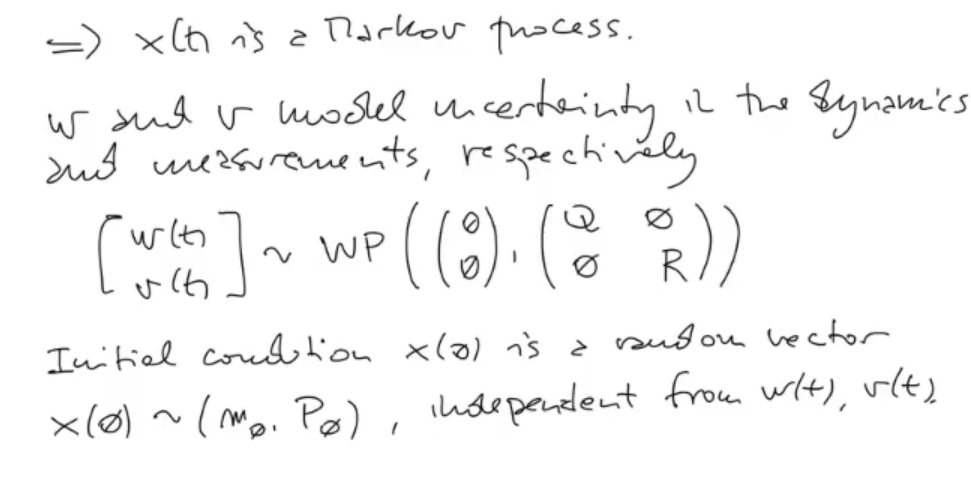 => x(t) is a Markov process.
w and v model uncertainty in the dynamics
and measurements, respectively
[w(t) v(t)] ~ WP ((0 0), (Q 0 0 R))
Initial condition x(0) is a random vector
x(0) ~ (m₀, P₀), independent from w(t), v(t).